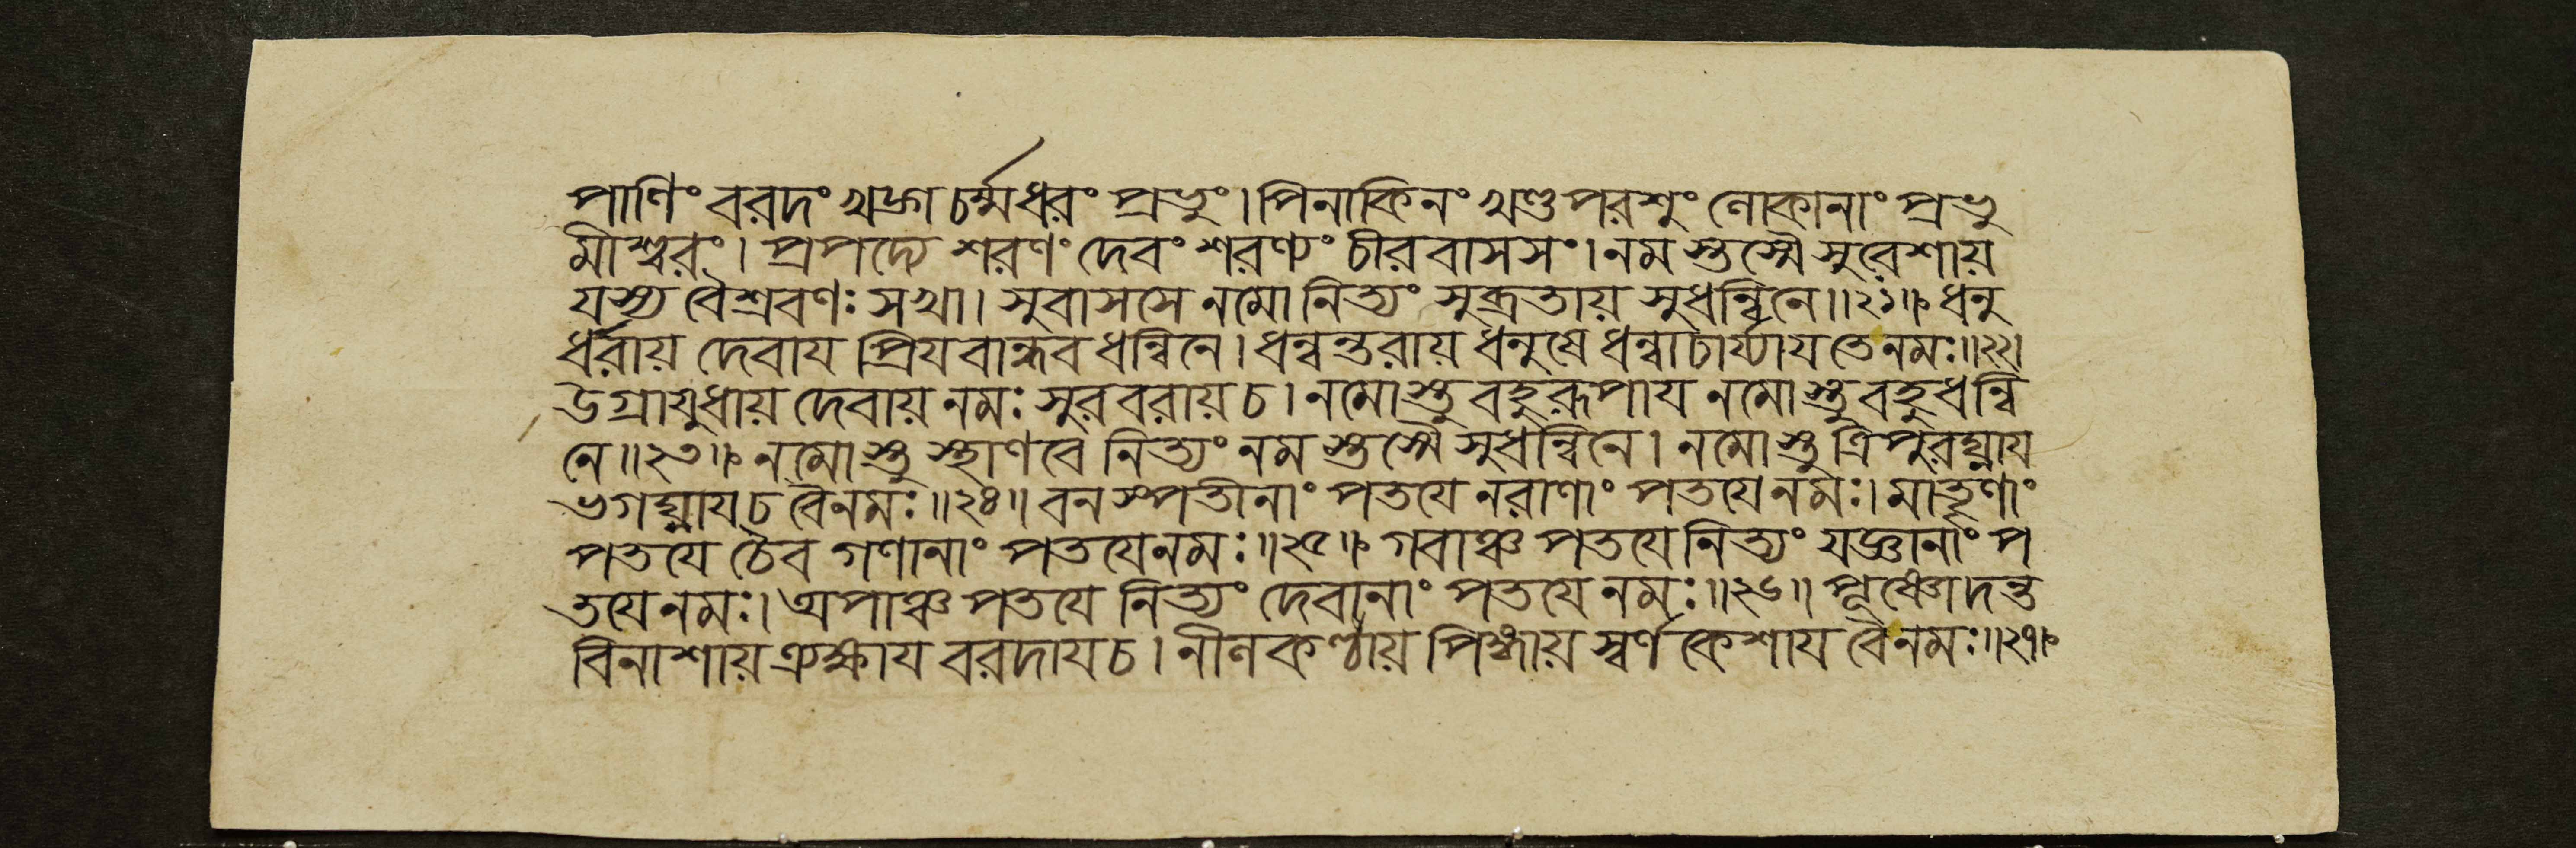 পাণিং বরদং খড্গ চর্ম্মধরং প্রভুং। পিনাকিনং খণ্ডপরশুং লোকানাং প্রভু
মীশ্বরং। প্রপদ্যে শরণং দেবং শরণ্যং চীরবাসসং। নমস্তস্মৈ সুরেশায়
যস্য বৈশ্রবণঃ সখা। সুবাসসে নমো নিত্যং সুব্রতায় সুধন্বিনে॥২১॥ ধনু
র্ধরায় দেবায প্রিযধান্নবধন্বিনে। ধন্বন্তরায় ধনুষে ধন্বাচার্য্যায তে নমঃ॥২২।
উগ্রাযুধায় দেবায় নমঃ সুরবরায় চ। নমোস্তু বহুরূপায নমোস্তু বহুধন্বি
নে॥২৩॥ নমোস্তু স্থাণবে নিত্যং নমস্তস্মৈ সুধন্বিনে। নমোস্তু ত্রিপুরঘ্নায
ভগঘ্নায চ বৈ নমঃ॥২৪॥ বনস্পতীনাং পতযে নরাণাং পতযে নমঃ। মাতৄণাং
পতযে চৈব গণানাং পতযে নমঃ॥২৫॥ গবাঞ্চ পতযে নিত্যং যজ্ঞানাং প
তযে নমঃ। অপাঞ্চ পতযে নিত্যং দেবানাং পতযে নমঃ॥২৬॥ পূষ্ণো দন্ত
বিনাশায় ত্র্যক্ষায বরদায চ। নীলকণ্ঠায় পিঙ্গায় স্বর্ণকেশায বৈ নমঃ॥২৭॥